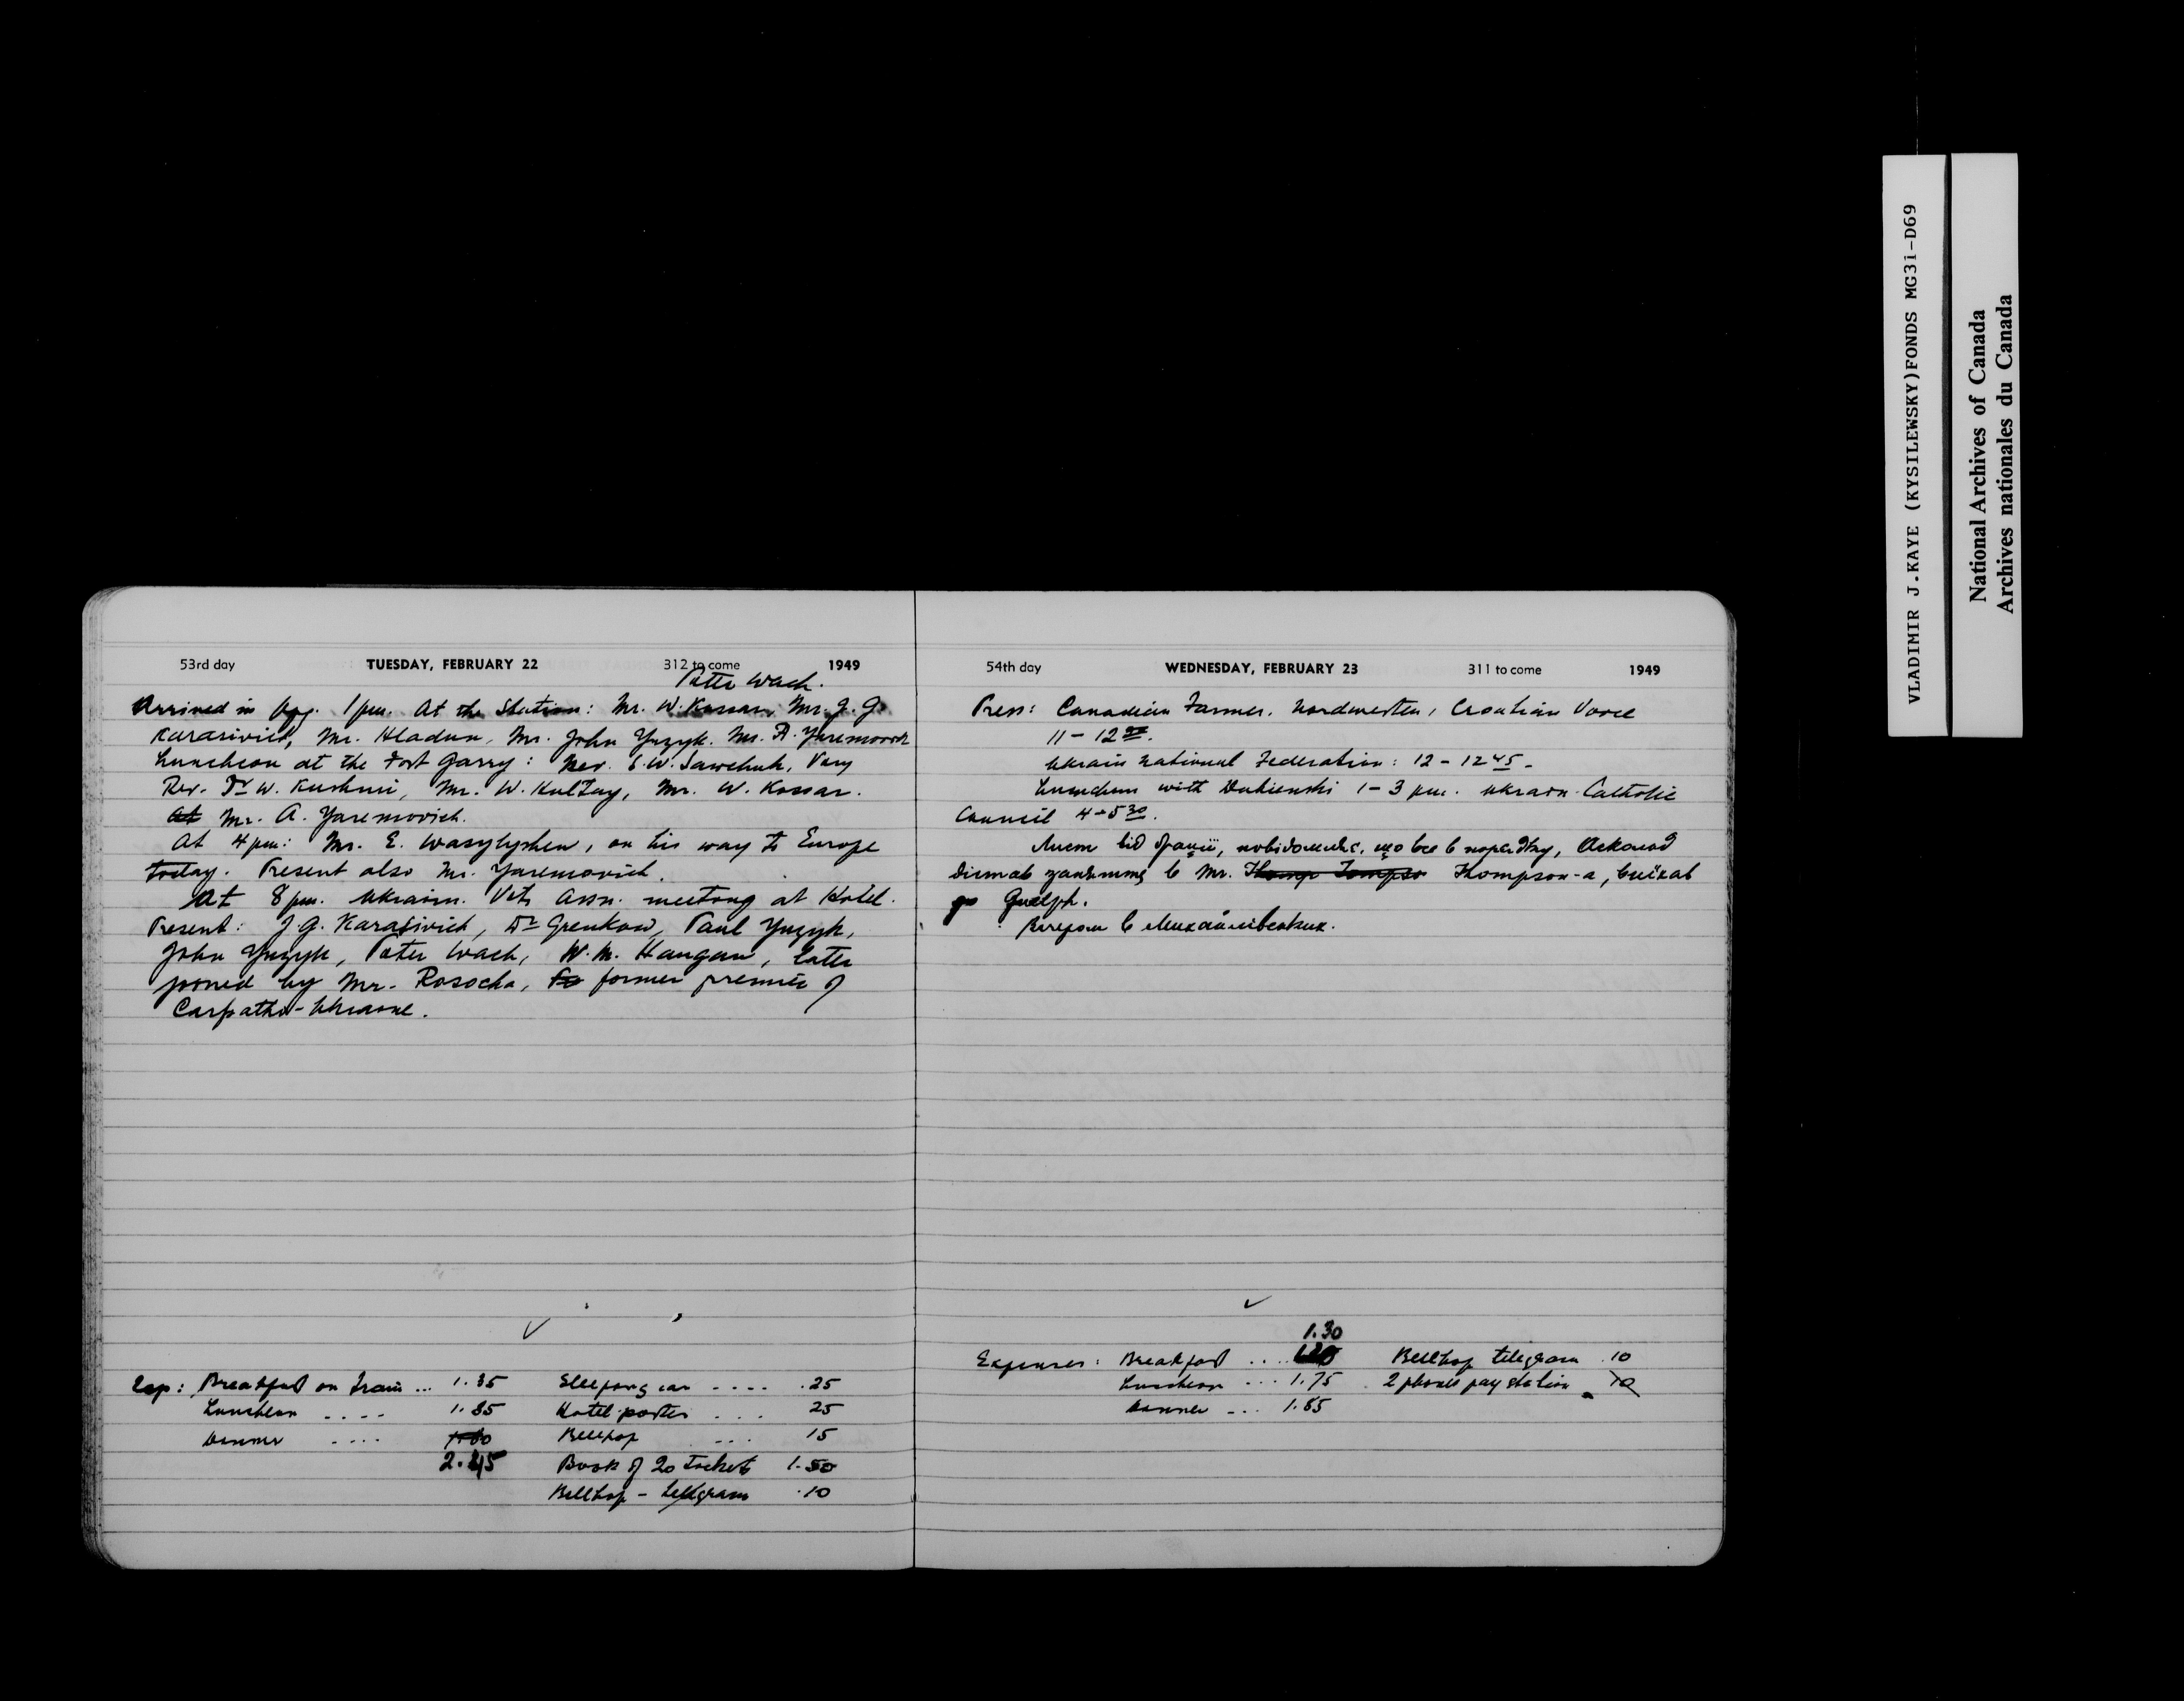 53rd day TUESDAY, FEBRUARY 22 312 to come 1949
Pater Wach.
Arrived in Wpg. 1 pm. At the Station: Mr. W. Kossar, Mr. J. G.
Karasivich, Mr. Hladun, Mr. John Yuzyk. Mr. A. Yaremovich
Luncheon at the Fort Garry: Rev. S. W. Sawchuk, Very
Rev. Dr W. Kushnir, Mr. W. Kossar.
At Mr. A. Yaremovich.
At 4 pm: Mr. E. Wasylyshen, on his way to Europe
today. Present also Mr. Yaremovich.
At 8 pm. Ukrain. Vets Assn. meeting at Hotel.
Present: J. G. Karasivich, Dr Grenkow, Paul Yuzyk,
John Yuzyk, Pater Wach, W. M. Hangan, later
joined by Mr. Rosocha, fo former premier of
Carpatho-Ukraine.
Exp: Breakfast on train ... 1.35 Sleeping car .... .25
Luncheon .... 1.85 Hotel porter ... 25
Dinner .... Bellhop ... 15
2.45 Book of 20 tickets 1.50
Bellhop - telegram .10
54th day WEDNESDAY, FEBRUARY 23 311 to come 1949
Press: Canadian Farmer, Nordwesten, Croatian Voice
11 - 12
Ukrain National Federation: 12 - 12 45 -
Luncheon with Dubienski 1 - 3 pm. Ukrain. Catholic
Council 4 - 5 30.
Лист від Грації, повідомляє, що все в порядку, Асколод
дістав заняття в Mr. Thomp Tompso Thompson-а, виїхав
до Guelph.
Вечером в Михайлівських.
1.30
Expenses: Breakfast ... Bellhop telegram .10
Luncheon ... 1.75 2 phones pay station 10
Dinner ... 1.85
VLADIMIR J.KAYE (KYSILEWSKY)FONDS MG3i-D69
National Archives of Canada
Archives nationales du Canada